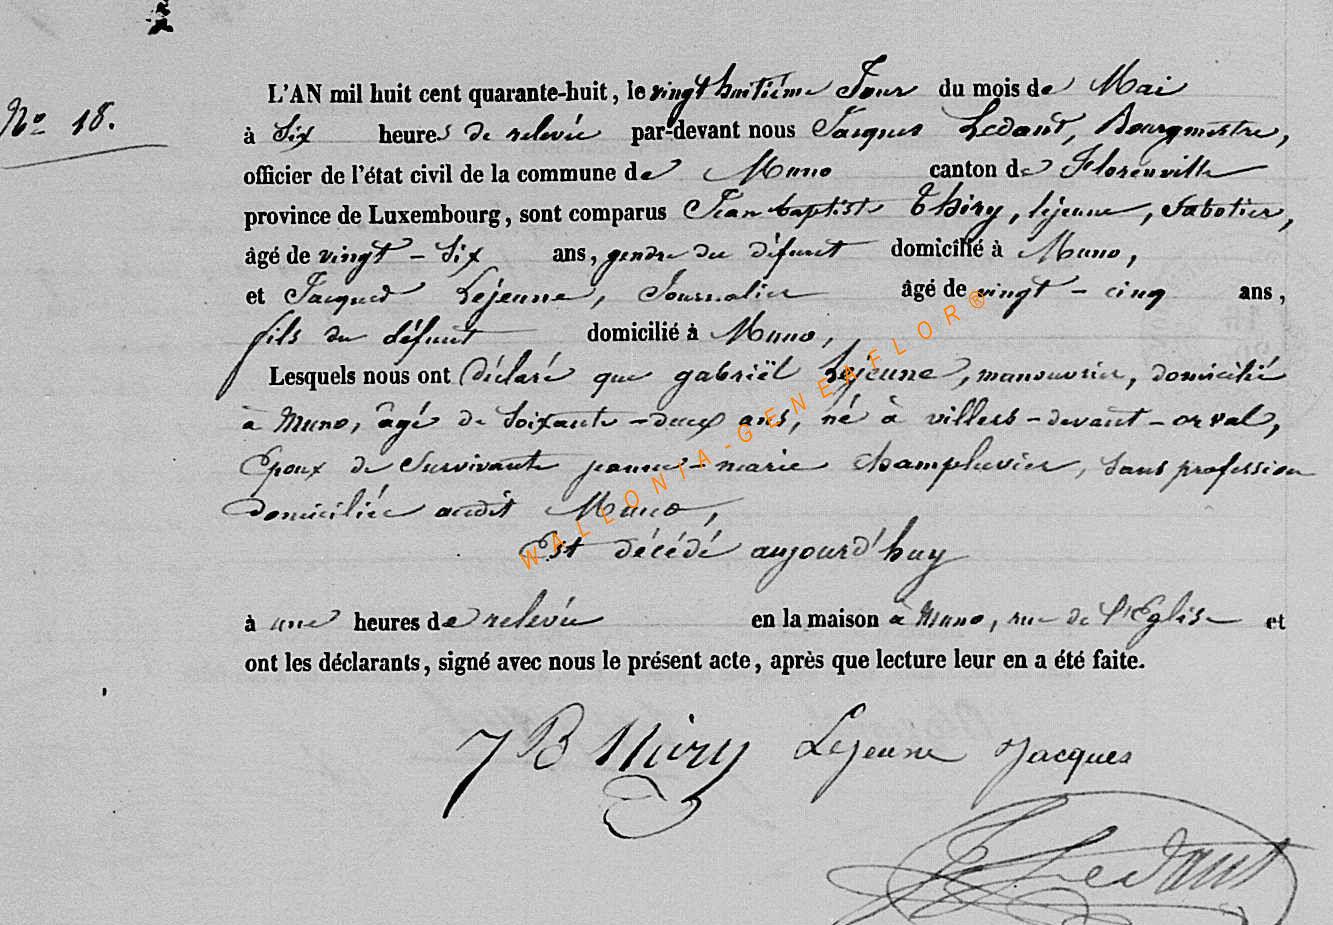 L'AN mil huit cent quarante-huit, le vingt huitiéme Jour du mois de Mai
No 18.
à Six heures de relevée par-devant nous Jacques Ledant, Bourgmestre,
officier de l'état civil de la commune de Muno canton de Florenville
province de Luxembourg, sont comparus Jean baptiste Thiry, lejeune, Sabotier,
âgé de vingt - Six ans, gendre du défunt domicilié à Muno,
et Jacques Lejeune, Journalier âgé de vingt - cinq ans,
fils du défunt domicilié à Muno,
Lesquels nous ont déclaré que gabriël Lejeune, manouvrier, domicilié
à Muno, âgé de Soixante-deux ans, né à villers-devant-orval,
Epoux de Survivante jeanne-marie champluvier, Sans profession
domiciliée audit Muno,
Est décédé aujourd'huy
à une heures de relevée en la maison à Muno, rue de l'Eglise et
ont les déclarants, signé avec nous le présent acte, après que lecture leur en a été faite.
JB thiry Lejeune Jacques
J Ledant
WALLONIA-GENEAFLOR®